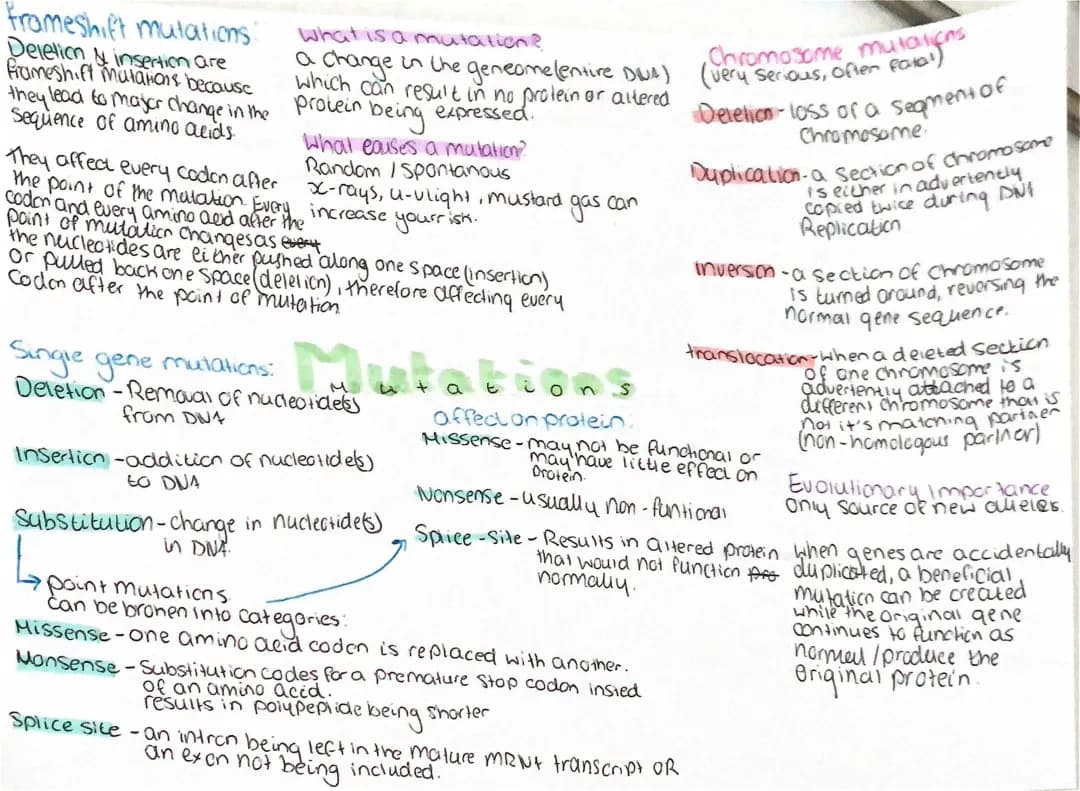 frameshift mutations:
Deletion & insertion are
frameshift mutations because
they lead to major change in the
sequence of amino acids.
They affect every codon after
the point of the mutation. Every
codon and every amino acid after the
point of mutation changes as every
the nucleotides are either pushed along one space (insertion)
or pulled back one space (deletion), therefore affecting every
codon after the point of mutation
What is a mutation?
a change in the geneome (entire DNA)
which can result in no protein or altered
protein being expressed.
What causes a mutation?
Random / spontanous
x-rays, u-v light, mustard gas can
increase your risk.
Chromosome mutations
(very serious, often fatal)
Deletion - loss of a segment of
chromosome.
Duplication - a section of chromosome
is either inadvertently
copied twice during DNA
Replication
inversion - a section of chromosome
is turned around, reversing the
normal gene sequence.
translocation - when a deleted section
of one chromosome is
advertently attached to a
different chromosome than is
not it's matching partner
(non-homologous partner)
Evolutionary importance
only source of new alleles.
when genes are accidentally
duplicated, a beneficial
mutation can be created
while the original gene
continues to function as
normal / produce the
original protein.
Mutations
Mutations
Single gene mutations:
Deletion - Removal of nucleotide(s)
from DNA
Insertion - addition of nucleotide(s)
to DNA
Substitution - change in nucleotide(s)
in DNA.
point mutations
can be broken into categories:
Missense - one amino acid codon is replaced with another.
Nonsense - Substitution codes for a premature stop codon insted
of an amino acid.
results in polypeptide being shorter
Splice site - an intron being left in the mature mRNA transcript OR
an exon not being included.
affect on protein:
Missense - may not be functional or
may have little effect on
protein.
Nonsense - usually non-funtional
Splice-site - Results in altered protein
that would not function pro
normally.